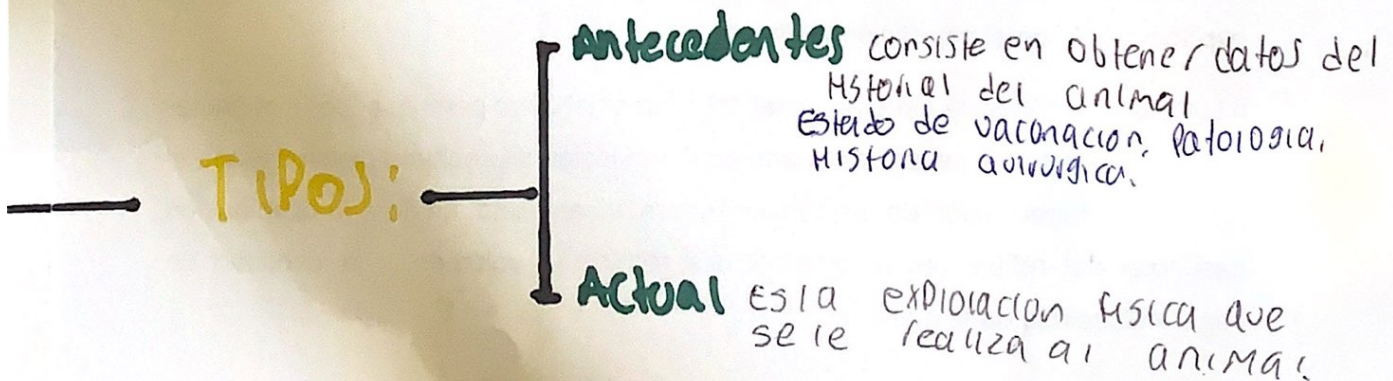 Antecedentes consiste en obtener datos del
Historial del animal
Estado de vacanacion, Patologia,
Historia quirurgica.
TIPOS:
Actual Es la exploracion fisica que
se le realiza al animal